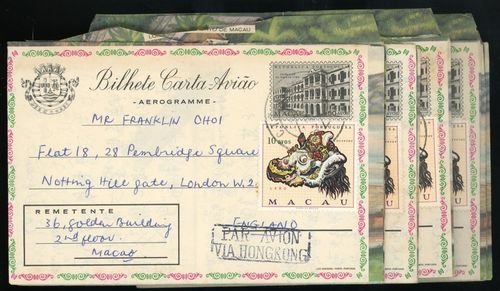 PORTO DE MACAU
Bilhete Carta Avião
- AEROGRAMME -
REPÚBLICA PORTUGUESA
MR FRANKLIN CHOI
Flat 18, 28 Pembridge Square
Notting Hill gate, London W.2.
ENGLAND
REPÚBLICA PORTUGUESA
10 avos
MACAU
REMETENTE
36, Golden Building
2nd floor
Macao
PAR AVION
VIA HONGKONG